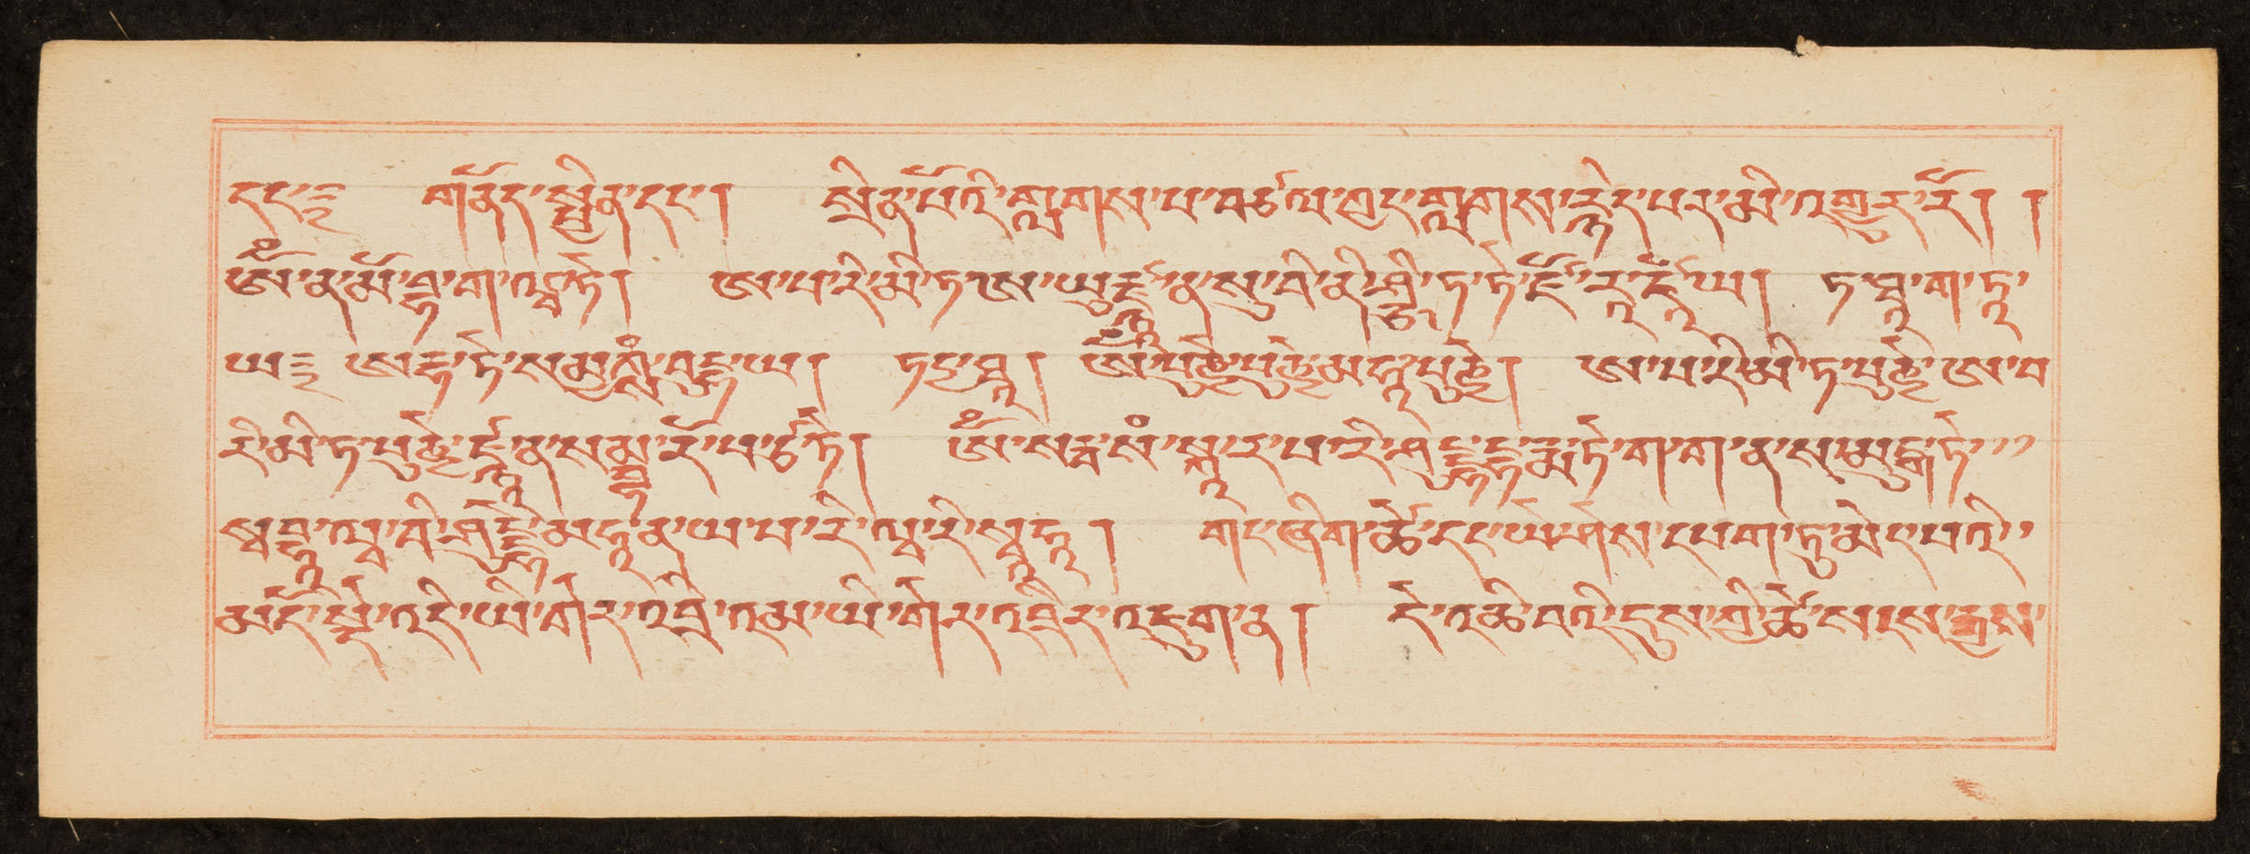 དང་༔ གནོད་སྦྱིན་དང་། སྲིན་པོའི་གླགས་པ་བཙལ་ཀྱང་གླགས་རྙེད་པར་མི་འགྱུར་རོ། །
ཨོཾ་ན་མོ་བྷ་ག་ཝ་ཏེ། ཨ་པ་རི་མི་ཏ་ཨ་ཡུརྫྙཱ་ན་སུ་བི་ནི་ཤྩི་ཏ་ཏེ་ཛོ་རཱ་ཛཱ་ཡ། ཏ་ཐཱ་ག་ཏཱ་
ཡ༔ ཨརྷ་ཏེ་སམྱཀྶཾ་བུདྡྷ་ཡ། ཏདྱ་ཐཱ། ཨོཾ་པུཎྱེ་པུཎྱེ་མ་ཧཱ་པུཎྱེ། ཨ་པ་རི་མི་ཏ་པུཎྱེ་ཨ་པ
རི་མི་ཏ་པུཎྱེ་ཛྙཱ་ན་སམྦྷཱ་རོ་པ་ཙི་ཏེ། ཨོཾ་སརྦ་སཾ་སྐཱ་ར་པ་རི་ཤུདྡྷ་དྷརྨ་ཏེ་ག་ག་ན་ས་མུདྒ་ཏེ་
སྭ་བྷཱ་ཝ་བི་ཤུདྡྷེ་མ་ཧཱ་ན་ཡ་པ་རི་ཝ་རི་སྭཱ་ཧཱ། གང་ཞིག་ཚེ་དང་ཡེ་ཤེས་དཔག་ཏུ་མེད་པའི་
མདོ་སྡེ་འདི་ཡི་གེར་འབྲི་འམ་ཡི་གེར་འབྲིར་འཇུག་ན། དེ་འཆི་བའི་དུས་ཀྱི་ཚེ་སངས་རྒྱས་